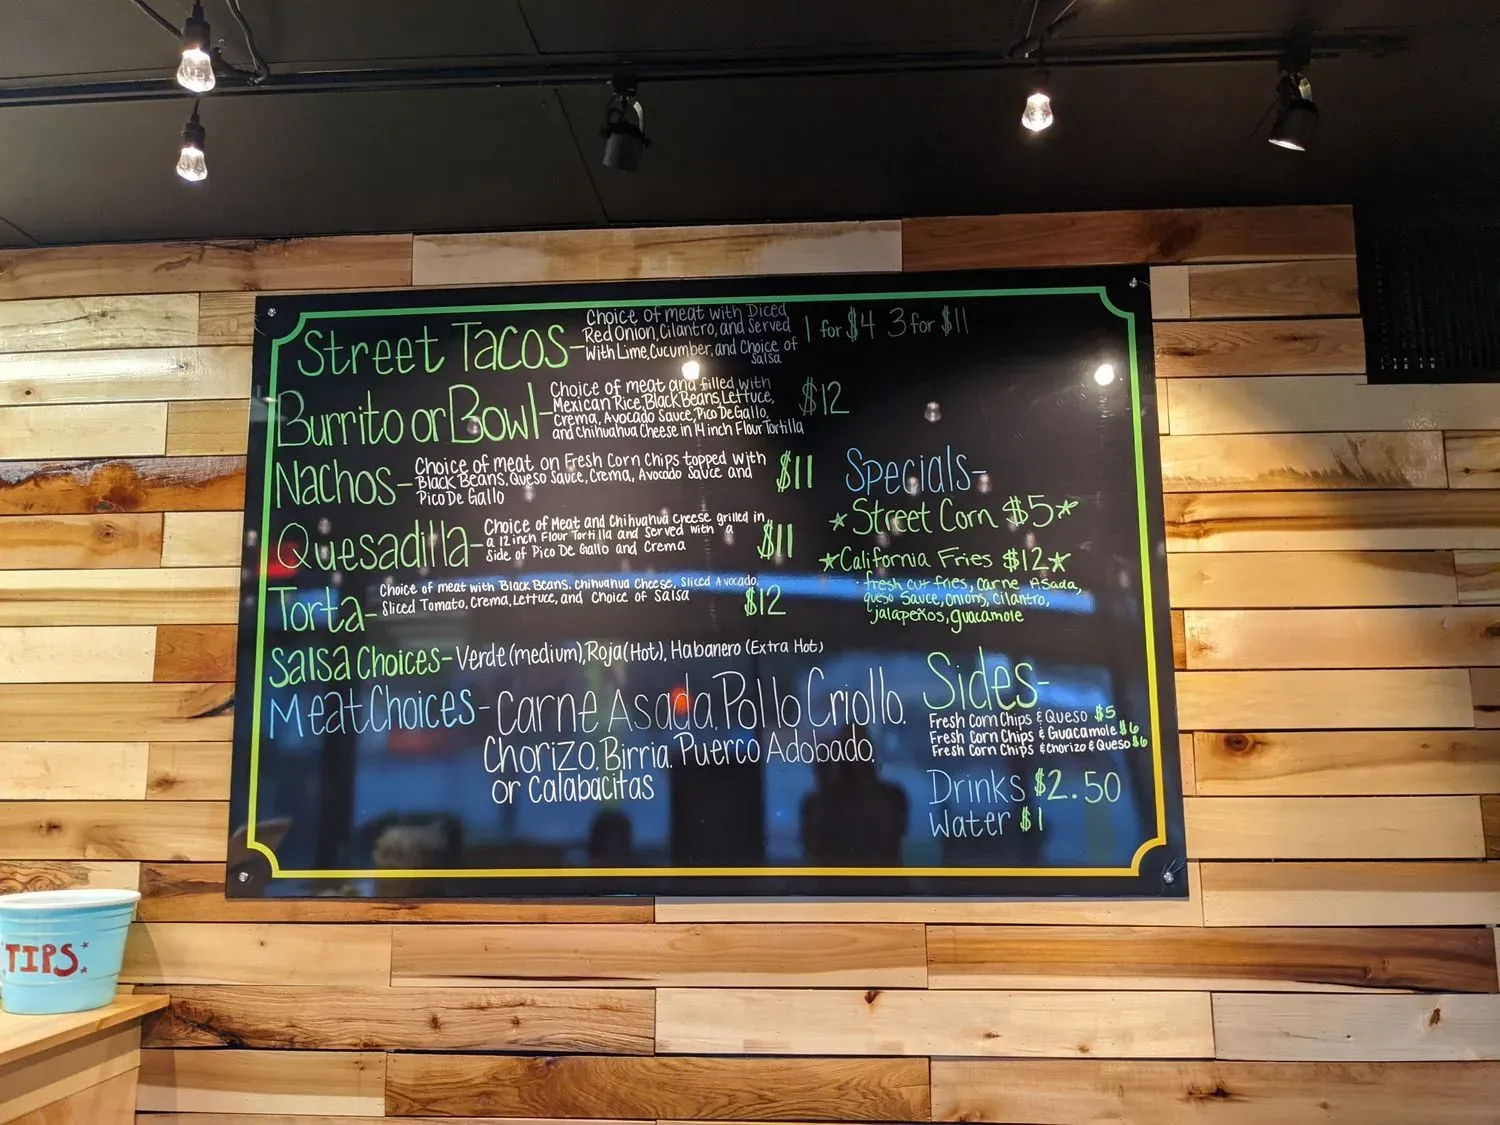 Street Tacos-
Choice of meat with Diced
Red Onion, Cilantro, and Served
With Lime, Cucumber, and Choice of
Salsa
1 for $4 3 for $11
Burrito or Bowl-
Choice of meat and filled with
Mexican Rice, Black Beans, Lettuce,
Crema, Avocado Sauce, Pico De Gallo,
and Chihuahua Cheese in 14 inch Flour Tortilla
$12
Nachos-
Choice of meat on Fresh Corn Chips topped with
Black Beans, Queso Sauce, Crema, Avocado Sauce and
Pico De Gallo
$11
Quesadilla-
Choice of Meat and Chihuahua Cheese grilled in
a 12 inch Flour Tortilla and Served with a
Side of Pico De Gallo and Crema
$11
Torta-
Choice of meat with Black Beans, Chihuahua Cheese, Sliced Avocado,
Sliced Tomato, Crema, Lettuce, and Choice of Salsa
$12
Salsa Choices- Verde (medium), Roja (Hot), Habanero (Extra Hot)
Meat Choices- Carne Asada, Pollo Criollo,
Chorizo, Birria, Puerco Adobado,
or Calabacitas
Specials-
★Street Corn $5★
★California Fries $12★
fresh cut fries, Carne Asada,
queso Sauce, Onions, Cilantro,
jalapeños, guacamole
Sides-
Fresh Corn Chips & Queso $5
Fresh Corn Chips & Guacamole $6
Fresh Corn Chips & Chorizo & Queso $6
Drinks $2.50
Water $1
TIPS